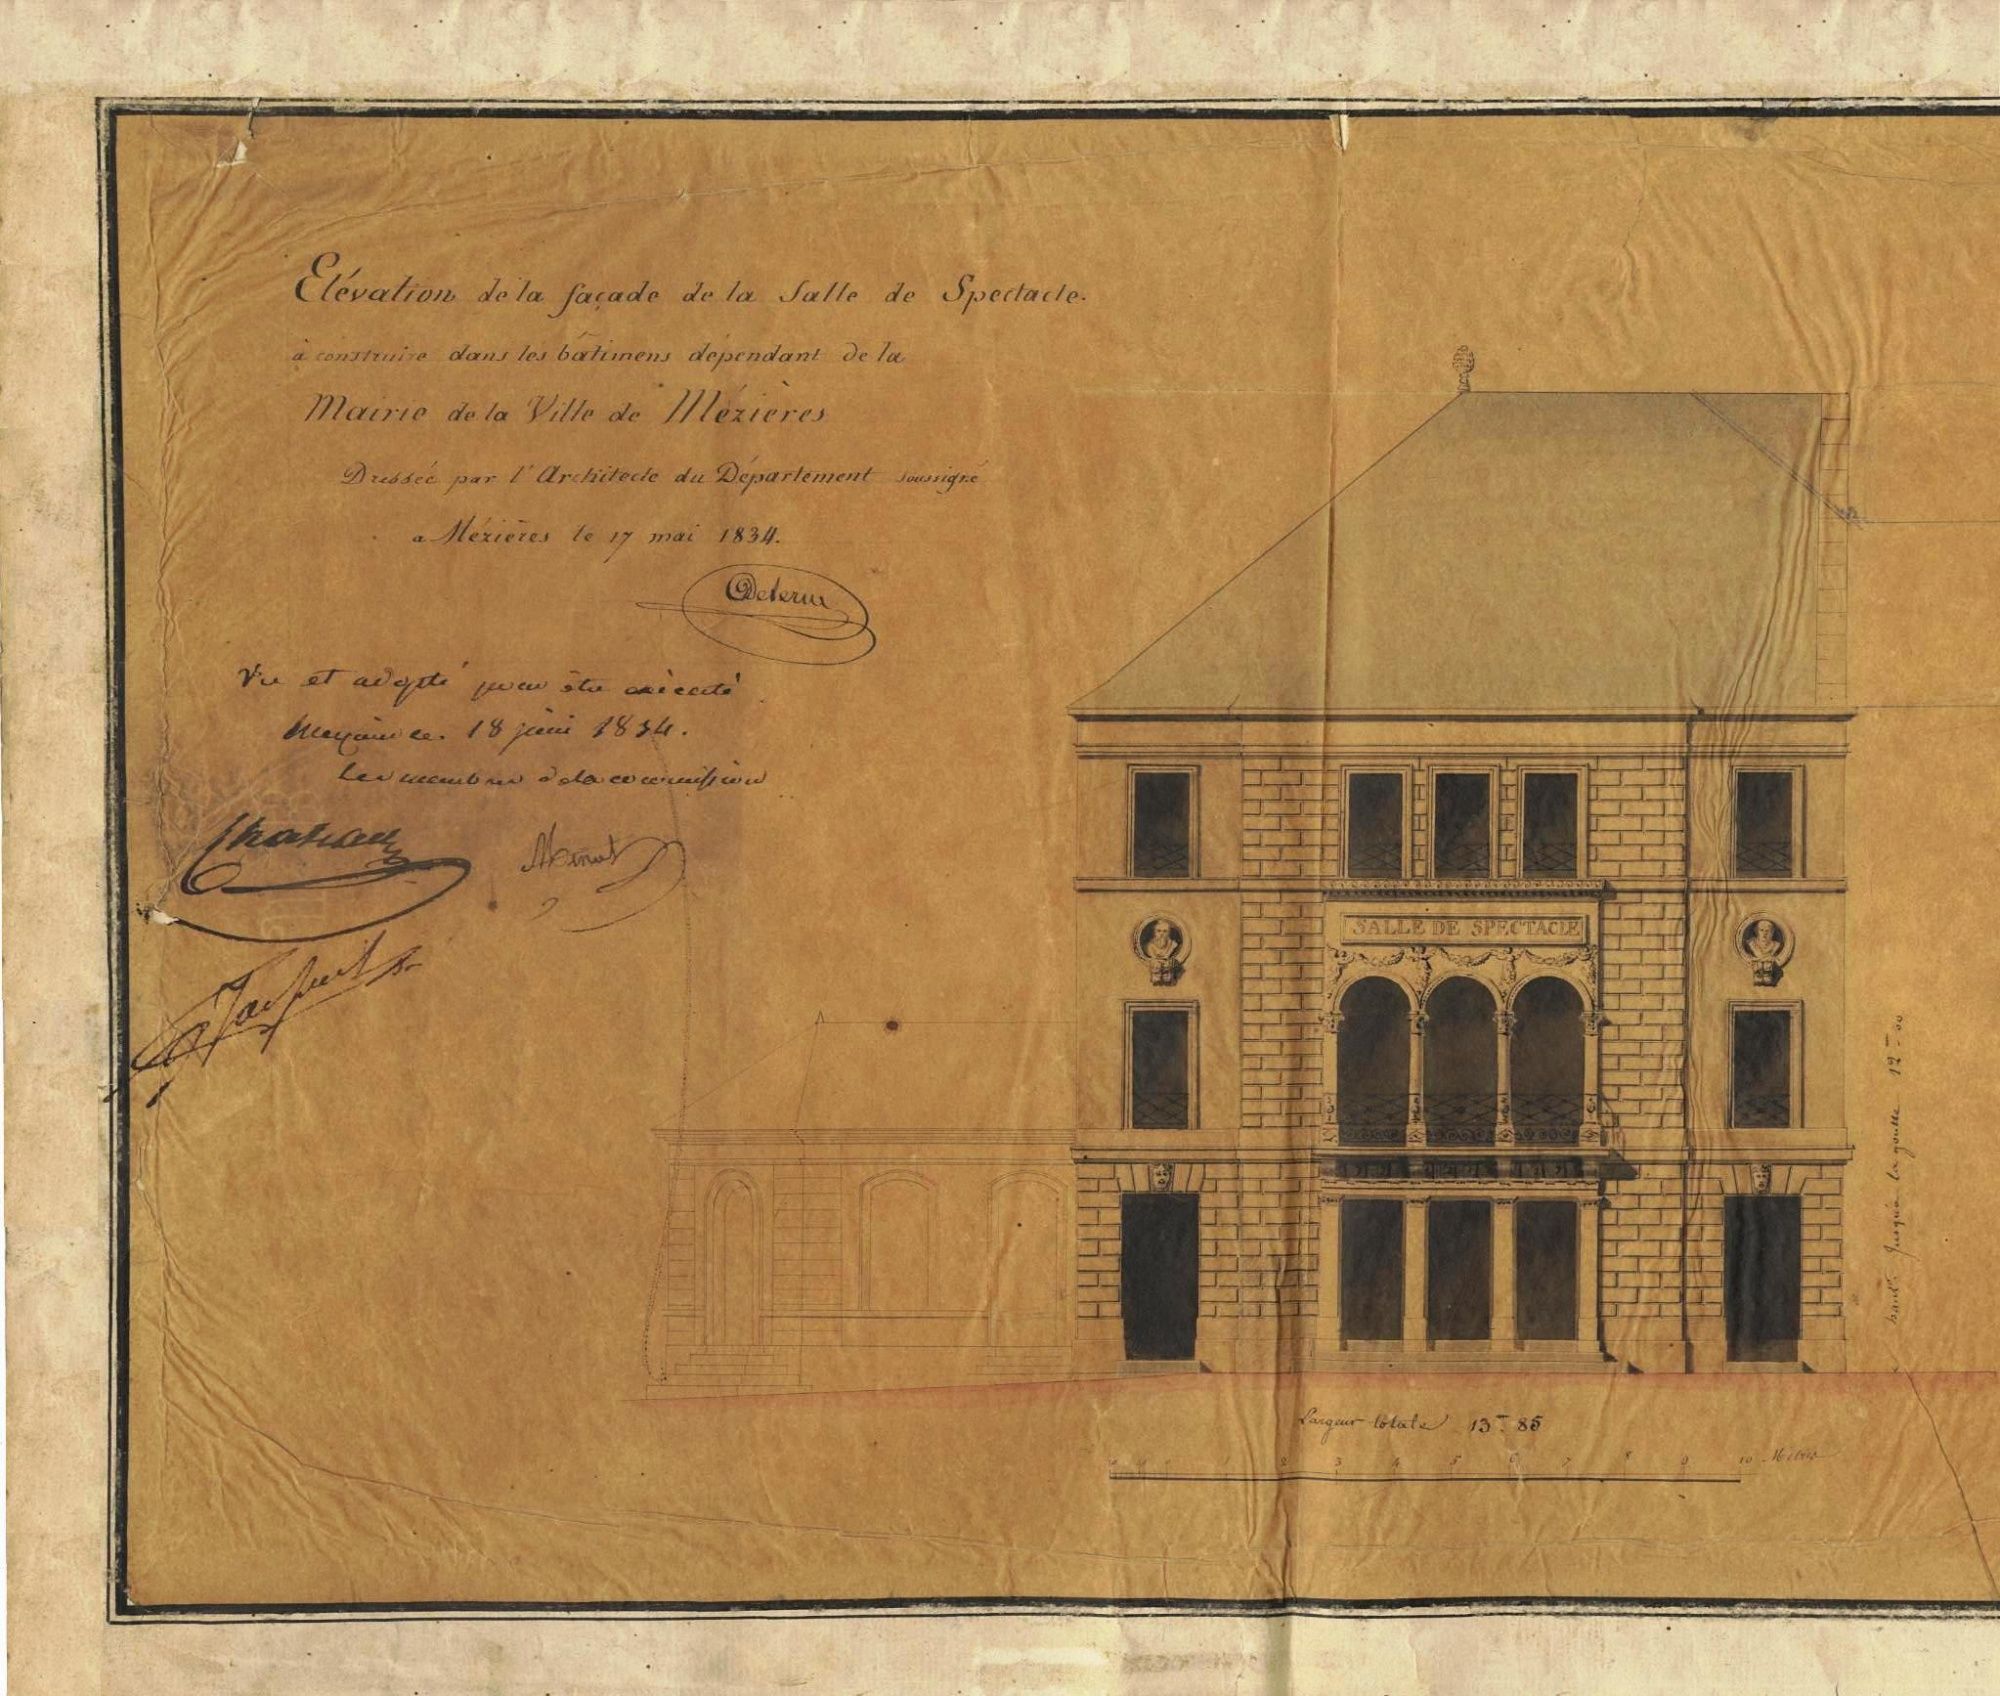 Elévation de la façade de la Salle de Spectacle.
à construire dans les bâtimens dépendant de la
Mairie de la Ville de Mézières
Dressée par l'Architecte du Département soussigné
a Mézières le 17 mai 1834.
Vu et adopté pour être exécuté
Mezieres 18 juin 1834.
Les membres de la commission
SALLE DE SPECTACLE
haut.r Jusqu'a la goutte 12m 00
Largeur totale 13m 85
1 2 3 4 5 6 7 8 9 10 Mètres